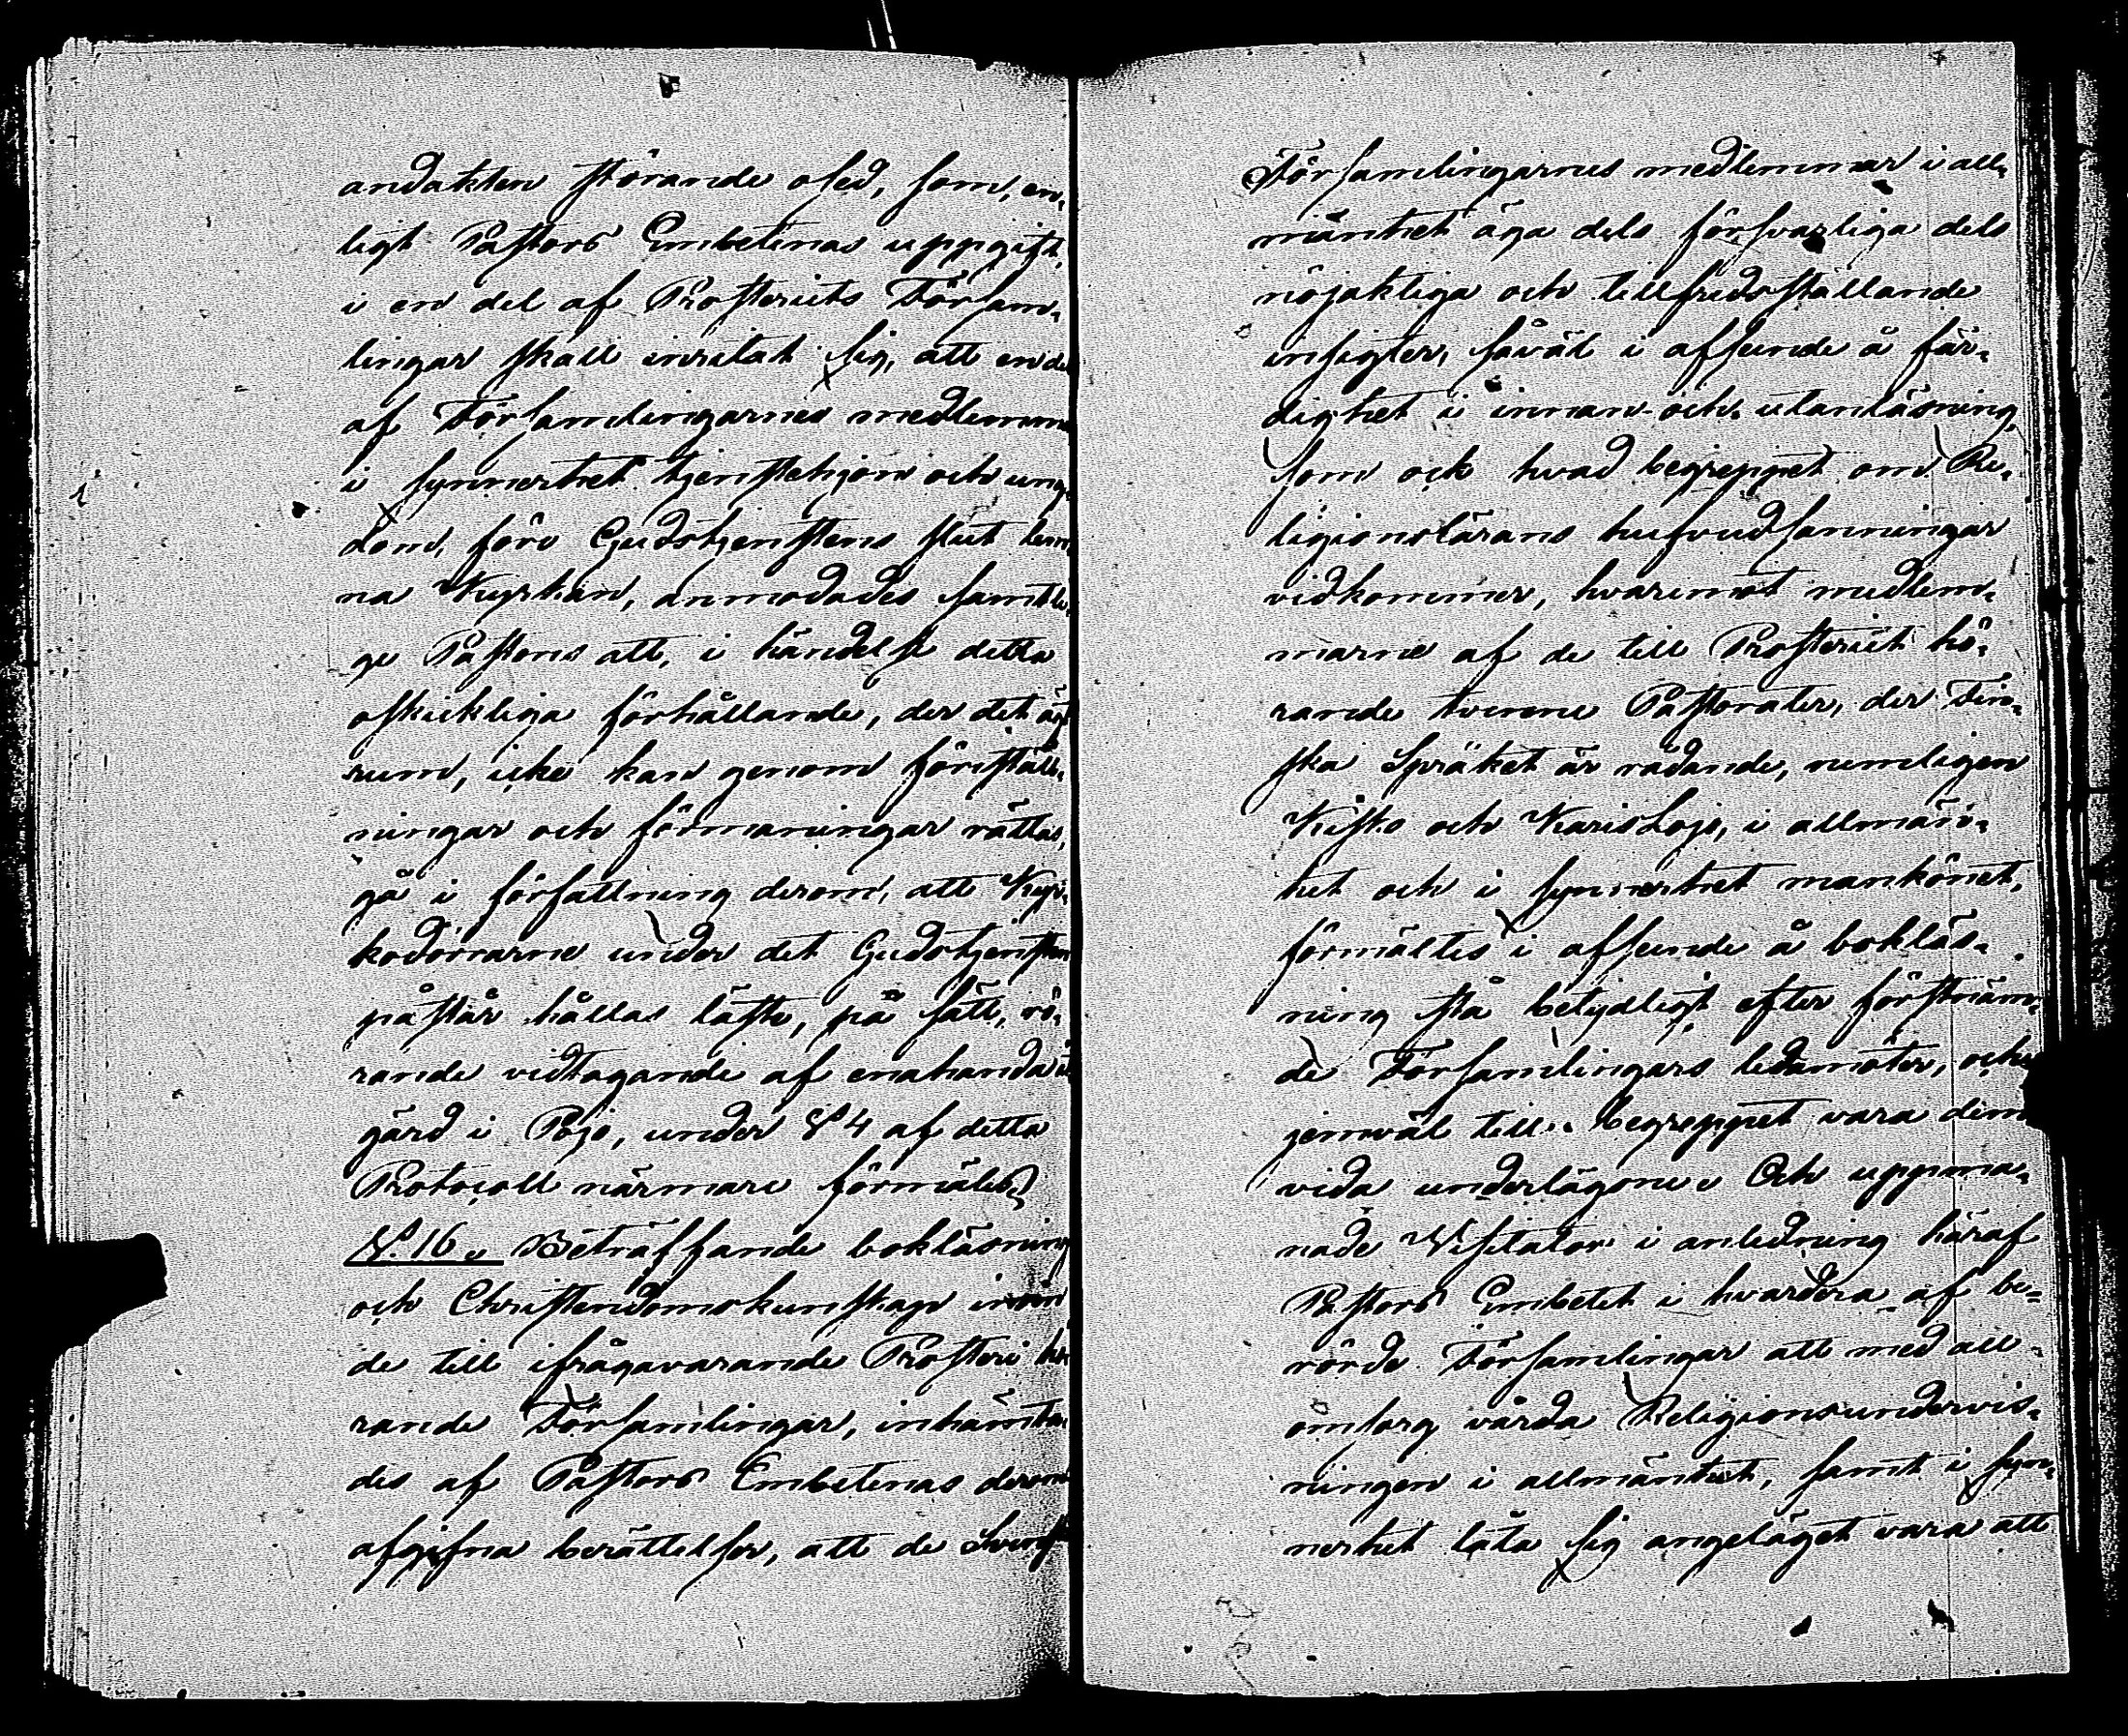 andakten störande osed, som, en-
ligt Pastors Embetenas uppgift,
i en del af Prosteriets Försam-
lingar skall inritat sig, att en del
af Församlingarnes medlemmar
i synnerhet tjenstehjon och ung-
dom, före Gudstjenstens slut lem-
na Kyrkan, anmodades samtli-
ge Pastores att, i händelse detta
oskickliga förhållande, der det äger
rum, icke kan genom föreställ-
ningar och förmaningar rättas,
gå i författning derom, att Kyr-
kodörrarne under det Gudstjensten
påstår hållas läste, på sätt, rö-
rande vidtagande af enahanda åt-
gärd i Pojo, under § 4 af detta
Protocoll närmare förmäles.
§. 16. Beträffande bokläsning
och Christendomskunskap inom
de till ifrågavarande Prosteri hö-
rande Församlingar, inhämta-
des af Pastors Embetenas derom
afgifna berättelser, att de Svenska
Församlingarnes medlemmar i all-
mänhet äga dels försvarliga dels
nöjaktiga och tillfredsställande
insigter, såväl i afseende å fär-
dighet i innan- och utanläsning,
som ock hvad begreppet om Re-
ligionslärans hufvudsanningar
vidkommer, hvaremot medlem-
marne af de till Prosteriet hö-
rande tvenne Pastorater, der Fin-
ska Språket är rådande, nemligen
Kisko och KarisLojo, i allmän-
het och i synnerhet mankönet,
förmältes i afseende å bokläs-
ning stå betydligt efter förstnäm-
de Församlingars ledamöter, och
jemväl till begreppet vara dem
vida underlägsne. Och uppma-
nade Visitator i anledning häraf
Pastors Embetet i hvardera af be-
rörde Församlingar att med all
omsorg vårda Religionsundervis-
ningen i allmänhet, samt i syn-
nerhet låta sig angeläget vara att